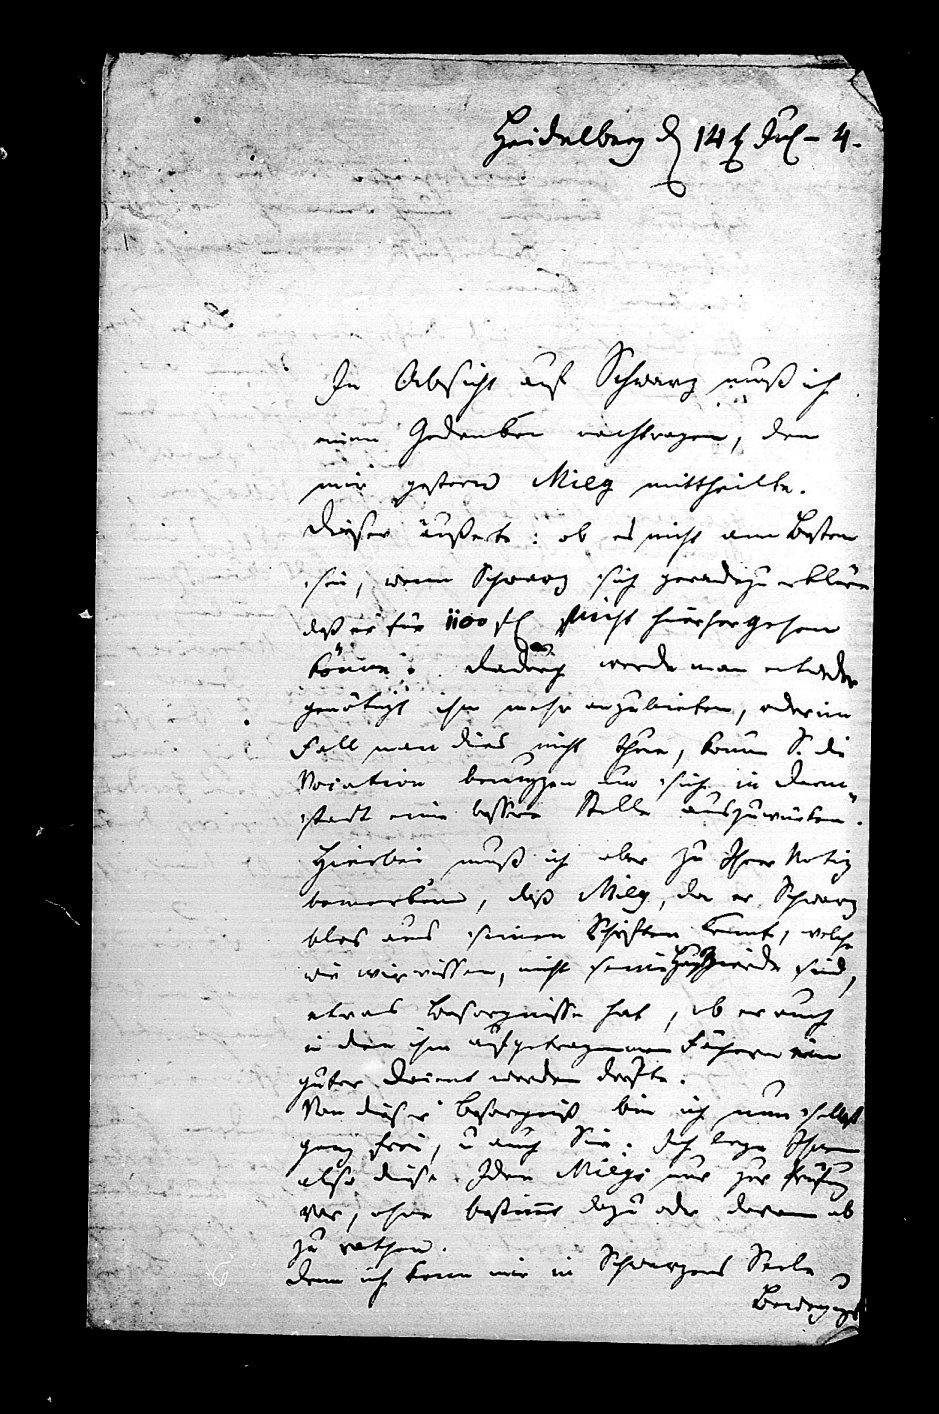 Heidelberg d 14t Jul - 4.
In Absicht auf Schwarz muß ich
einen Gedanken nachtragen, den
mir gestern Mieg mittheilte.
Dieser äußerte: ob es nicht am Besten
sei, wenn Schwarz sich geradezu erkläre
daß er für 1100 fl nicht hierhergehen
könne". Dadurch werde man entweder
genötigt ihm mehr anzubieten, oder im
Fall man dies nicht thue, könne S. die
Vocation benuzzen um sich in Darm-
stadt eine bessere Stelle auszuwürken".
Hierbei muß ich aber zu Ihrer Notiz
bemerken, daß Mieg, da er Schwarz
blos aus seinen Schriften kennt, welche
wie wir wissen, nicht seine sind,
etwas Besorgnisse hat, ob er auch
in den ihm aufgetragenen Fächern ein
guter Docent werden dürfte.
Von dieser Besorgniß bin ich nun selbst
ganz frei, u auch Sie. Ich lege Ihnen
also diese Idee Miegs nur zur Prüfung
vor, ohne bestimmt dazu oder davon ab
zu rathen.
Denn ich kann mir in Schwarzens Seele